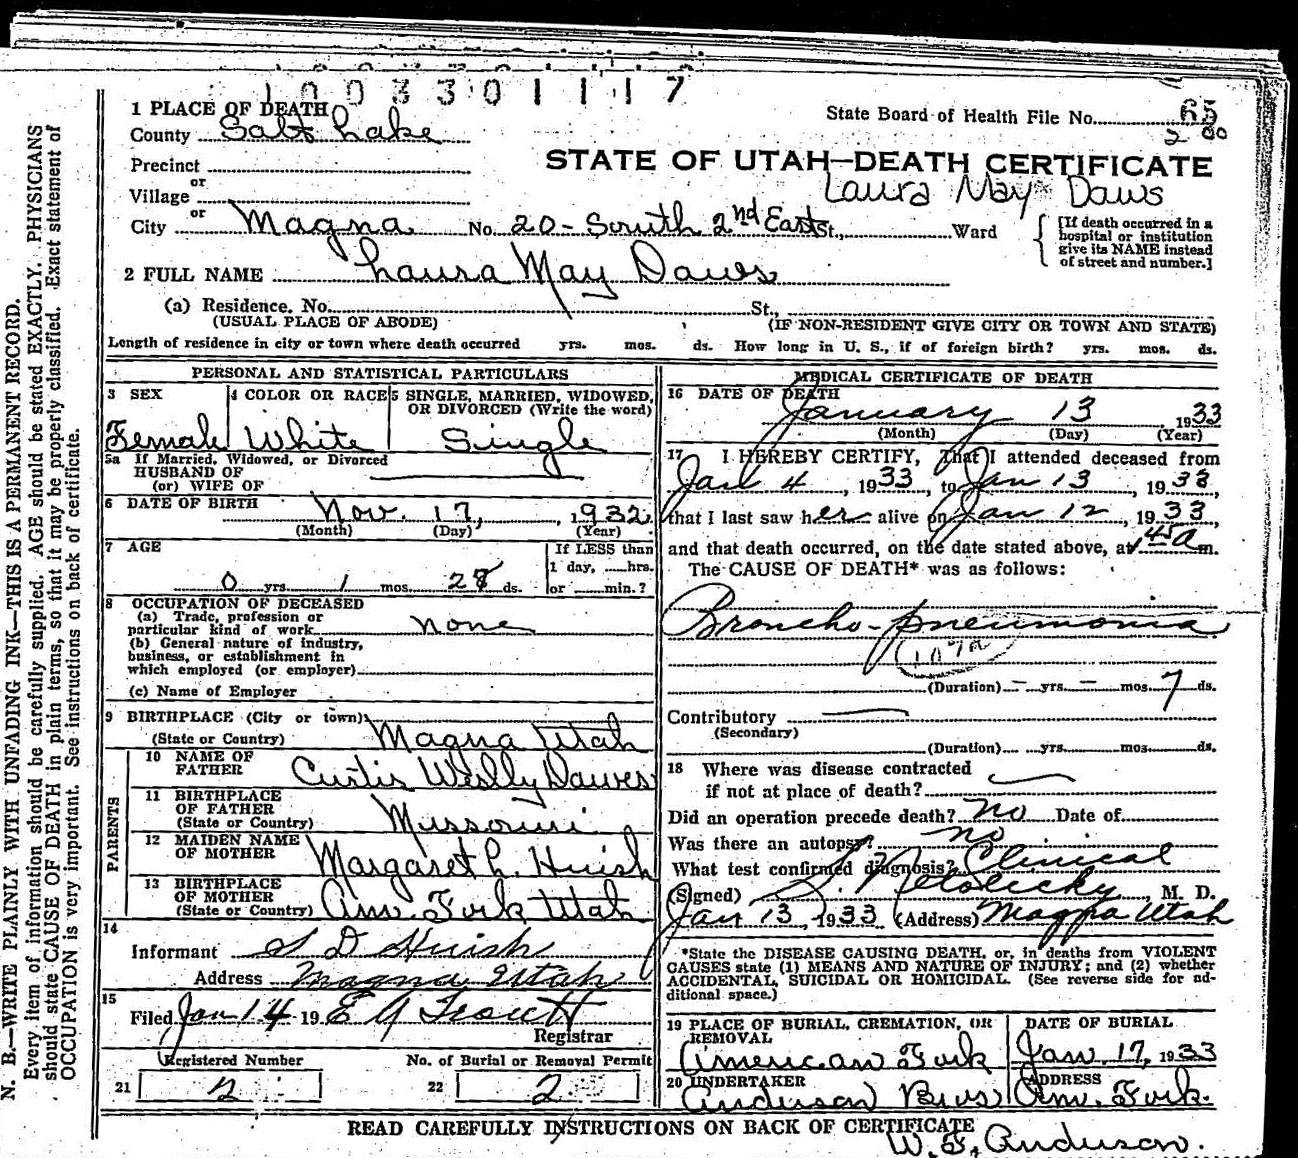 1003301117
State Board of Health File No. 65
2 00
1 PLACE OF DEATH
County Salt Lake
Precinct
or
Village
or
City Magna No. 20- South 2nd East St., Ward
STATE OF UTAH—DEATH CERTIFICATE
Laura May Daws
[If death occurred in a
hospital or institution
give its NAME instead
of street and number.]
2 FULL NAME Laura May Daws
(a) Residence. No. St.,
(USUAL PLACE OF ABODE) (IF NON-RESIDENT GIVE CITY OR TOWN AND STATE)
Length of residence in city or town where death occurred yrs. mos. ds. How long in U. S., if of foreign birth? yrs. mos. ds.
PERSONAL AND STATISTICAL PARTICULARS
3 SEX
Female
4 COLOR OR RACE
White
5 SINGLE, MARRIED, WIDOWED,
OR DIVORCED (Write the word)
Single
5a If Married, Widowed, or Divorced
HUSBAND OF
(or) WIFE OF
6 DATE OF BIRTH Nov. 17, 1932
(Month) (Day) (Year)
7 AGE
0 yrs. 1 mos. 28 ds.
If LESS than
1 day, hrs.
or min.?
8 OCCUPATION OF DECEASED
(a) Trade, profession or
particular kind of work none
(b) General nature of industry,
business, or establishment in
which employed (or employer)
(c) Name of Employer
9 BIRTHPLACE (City or town)
(State or Country) Magna Utah
PARENTS
10 NAME OF
FATHER Curtis Weslly Dawes
11 BIRTHPLACE
OF FATHER
(State or Country) Missouri
12 MAIDEN NAME
OF MOTHER Margaret L. Huish
13 BIRTHPLACE
OF MOTHER
(State or Country) Am. Fork Utah
14
Informant S D Huish
Address Magna Utah
15
Filed Jan 14 19 E A
Registrar
Registered Number
21 2
No. of Burial or Removal Permit
22 2
MEDICAL CERTIFICATE OF DEATH
16 DATE OF DEATH
January 13 1933
(Month) (Day) (Year)
17 I HEREBY CERTIFY, That I attended deceased from
Jan 4, 1933, to Jan 13, 1933,
that I last saw her alive on Jan 12, 1933,
and that death occurred, on the date stated above, at 1 45 a m.
The CAUSE OF DEATH* was as follows:
Broncho-pneumonia
107a
(Duration) — yrs. — mos. 7 ds.
Contributory
(Secondary)
(Duration) yrs. mos. ds.
18 Where was disease contracted
if not at place of death?
Did an operation precede death? no Date of
Was there an autopsy? no
What test confirmed diagnosis? Clinical
(Signed) S. Netolicky, M. D.
Jan 13, 1933 (Address) Magna Utah
*State the DISEASE CAUSING DEATH, or, in deaths from VIOLENT
CAUSES state (1) MEANS AND NATURE OF INJURY; and (2) whether
ACCIDENTAL, SUICIDAL OR HOMICIDAL. (See reverse side for ad-
ditional space.)
19 PLACE OF BURIAL, CREMATION, OR
REMOVAL
American Fork
DATE OF BURIAL
Jan. 17, 1933
20 UNDERTAKER
Anderson Bros
ADDRESS
Am. Fork.
READ CAREFULLY INSTRUCTIONS ON BACK OF CERTIFICATE
W. F. Anderson.
N. B.—WRITE PLAINLY WITH UNFADING INK—THIS IS A PERMANENT RECORD.
Every item of information should be carefully supplied. AGE should be stated EXACTLY. PHYSICIANS
should state CAUSE OF DEATH in plain terms, so that it may be properly classified. Exact statement of
OCCUPATION is very important. See instructions on back of certificate.